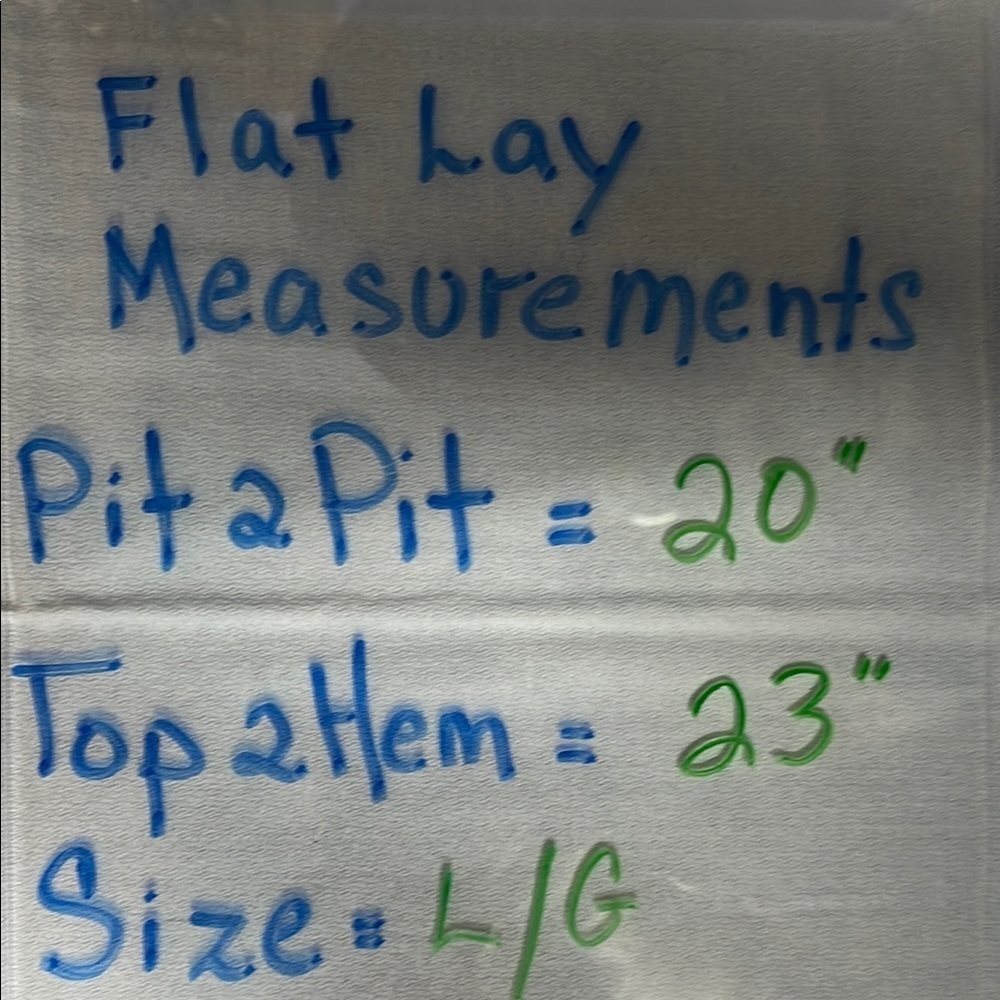 Flat Lay
Measurements
Pit 2 Pit = 20"
Top 2 Hem = 23"
Size = L/G